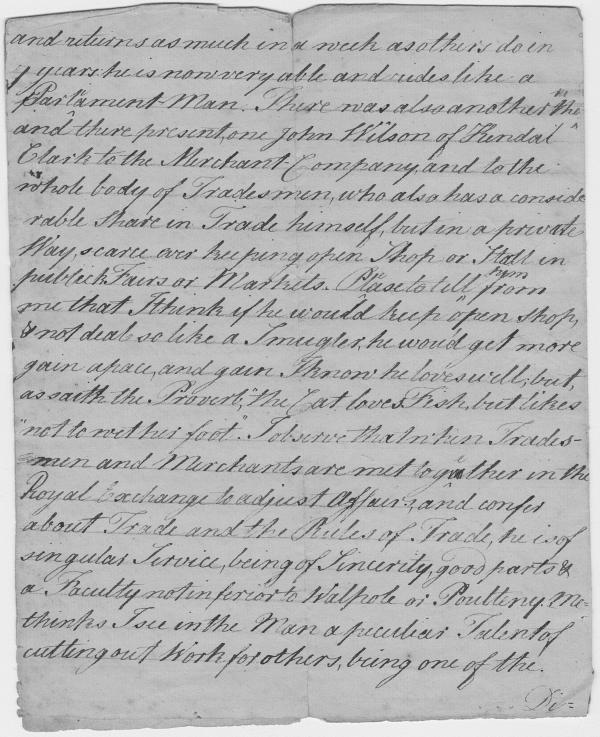 and returns as much in a week as others do in
7 years: he is now very able and rides like a
Parlament-Man. There was also another then
and there present, one John Wilson of Kendal
Clark to the Merchant-Company, and to the
whole body of Tradesmen, who also has a conside
rable Share in Trade himself, but in a private
Way, scarce ever keeping open Shop or Stall in
publick Fairs or Markets. Please to tell hym from
me that I think if he would keep open shop,
& not deal so like a Smugler, he woud get more
gain apace, and gain I know he loves well; but,
as saith the Proverb, "the Cat loves Fish, but likes
"not to wet her foot". I observe that when Trades-
men and Merchants are met together in the
Royal Exchange to adjust Affairs, and confer
about Trade and the Rules of Trade, he is of
singular Service, being of Sincerity, good parts &
a Faculty not inferior to Walpole or Poulteny. Me=
thinks I see in the Man a peculiar Talent of
cutting out Work for others, being one of the
Di=